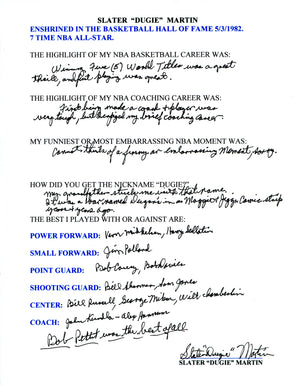 SLATER "DUGIE" MARTIN
ENSHRINED IN THE BASKETBALL HALL OF FAME 5/3/1982.
7 TIME NBA ALL-STAR.
THE HIGHLIGHT OF MY NBA BASKETBALL CAREER WAS:
Winning Five (5) World Titles was a great
thrill, and just playing was great.
THE HIGHLIGHT OF MY NBA COACHING CAREER WAS:
First being made a coach & player was
very tough, but enjoyed my brief coaching career.
MY FUNNIEST OR MOST EMBARRASSING NBA MOMENT WAS:
Cannot think of a funny or embarrassing Moment, sorry.
HOW DID YOU GET THE NICKNAME "DUGIE"
my grandfather stuck me with that name.
It was a bar named Dugan's in a Maggie & Jiggs Comic strip
years & years ago.
THE BEST I PLAYED WITH OR AGAINST ARE:
POWER FORWARD: Vern Mikkelsen, Harry Gallatin
SMALL FORWARD: Jim Pollard
POINT GUARD: Bob Cousy, Bob Davies
SHOOTING GUARD: Bill Sharman, Sam Jones
CENTER: Bill Russell, George Mikan, Wilt chamberlin
COACH: John Kundla - Alex Hannum
Bob Pettit was the best of all
Slater "Dugie" Martin
SLATER "DUGIE" MARTIN